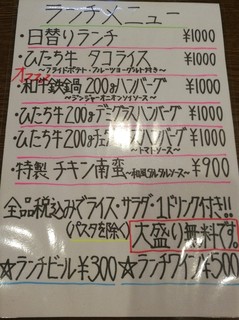 ランチメニュー
・日替りランチ ¥1000
・ひたち牛 タコライス ¥1000
〜フライドポテト・フルーツヨーグルト付き〜
オススメ
・和牛鉄鍋 200gハンバーグ ¥1000
〜ジンジャーオニオンソース〜
・ひたち牛200gデミグラスハンバーグ ¥1000
・ひたち牛200gチーズハンバーグ ¥1000
〜トマトソース〜
・特製 チキン南蛮 〜和風タルタルソース〜 ¥900
全品税込みでライス・サラダ・1ドリンク付き!!
(パスタを除く) 大盛り無料です。
☆ランチビール¥300 ☆ランチワイン¥500